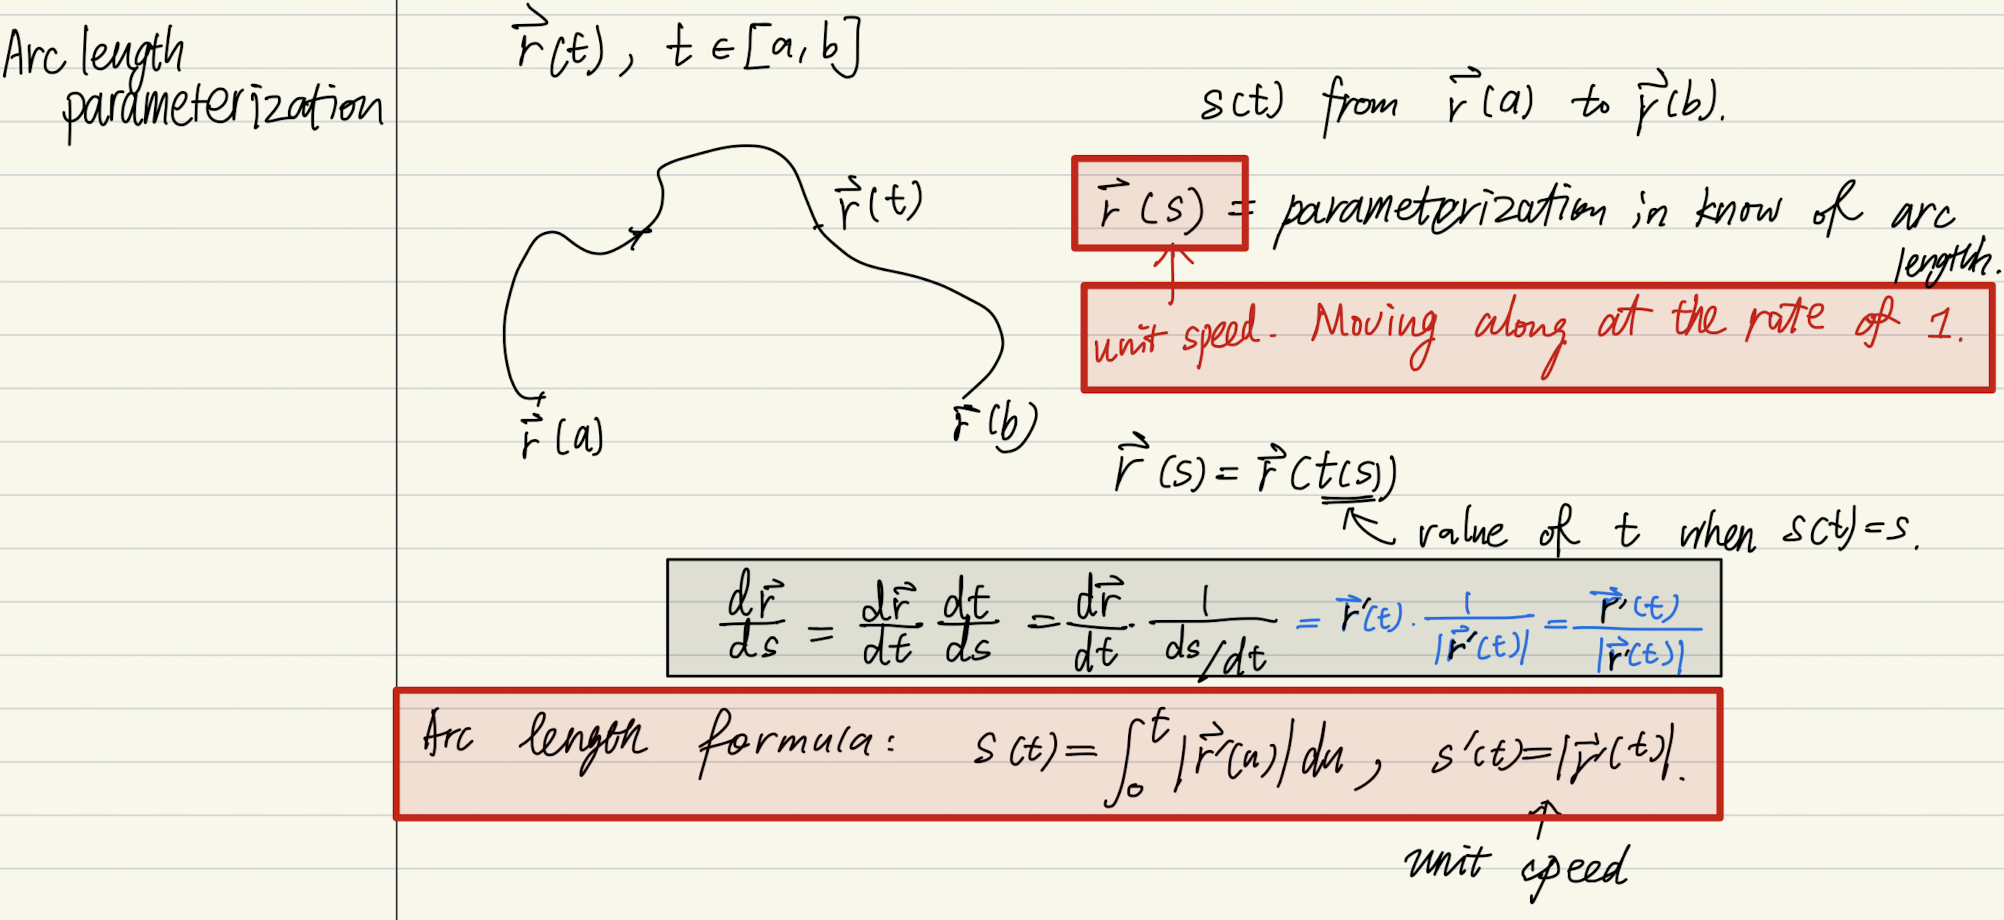 Arc length
parameterization
r⃗(t), t ∈ [a, b]
s(t) from r⃗(a) to r⃗(b).
r⃗(t)
r⃗(a)
r⃗(b)
r⃗(s) = parameterization in know of arc
length.
unit speed. Moving along at the rate of 1.
r⃗(s) = r⃗(t(s))
value of t when s(t)=s.
dr⃗/ds = dr⃗/dt dt/ds = dr⃗/dt · 1/(ds/dt) = r⃗'(t) · 1/|r⃗'(t)| = r⃗'(t)/|r⃗'(t)|
Arc length formula: s(t) = ∫₀ᵗ |r⃗'(u)| du, s'(t)=|r⃗'(t)|.
unit speed